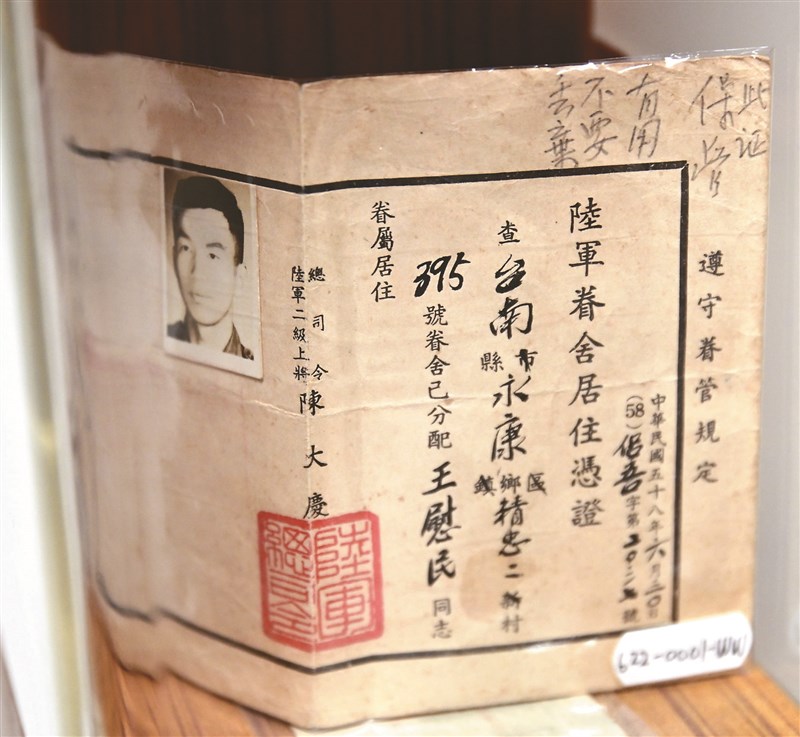 此证
保管
有用
不要
丟棄
遵守眷管規定
中華民國五十八年六月三〇日
(58)侶吾字第二〇二五號
陸軍眷舍居住憑證
查台南市縣永康區鄉鎮精忠二新村
395號眷舍已分配王慰民同志
眷屬居住
總司令
陸軍二級上將陳大慶
陸軍
總司令
622-0001-WW